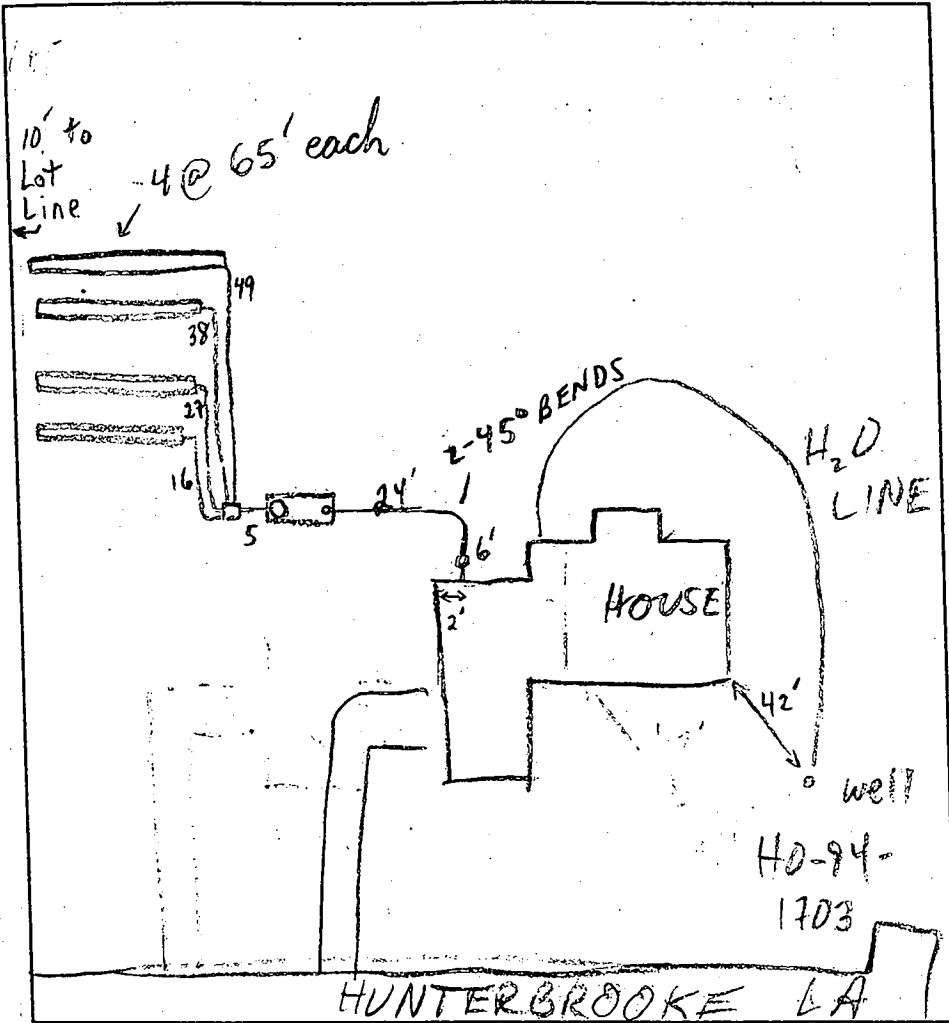 10' to
Lot
Line
4 @ 65' each
49
38
27
16
5
24'
2-45° BENDS
6'
2'
H₂O
LINE
HOUSE
42'
well
HO-94-
1703
HUNTERBROOKE LA